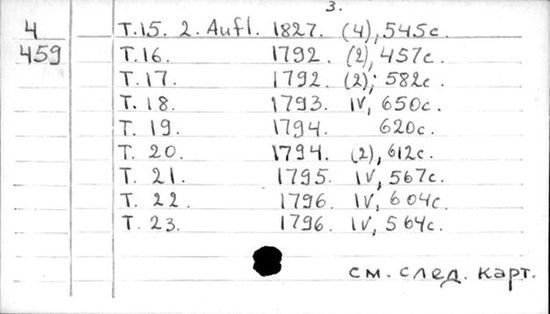 3.
4 Т.15. 2. Aufl. 1827. (4), 545с.
459 Т.16. 1792. (2), 457с.
Т.17. 1792. (2); 582с.
Т. 18. 1793. IV, 650с.
Т. 19. 1794. 620с.
Т. 20. 1794. (2), 612с.
Т. 21. 1795. IV, 567с.
Т. 22. 1796. IV, 604с.
Т. 23. 1796. IV, 564с.
см. след. карт.